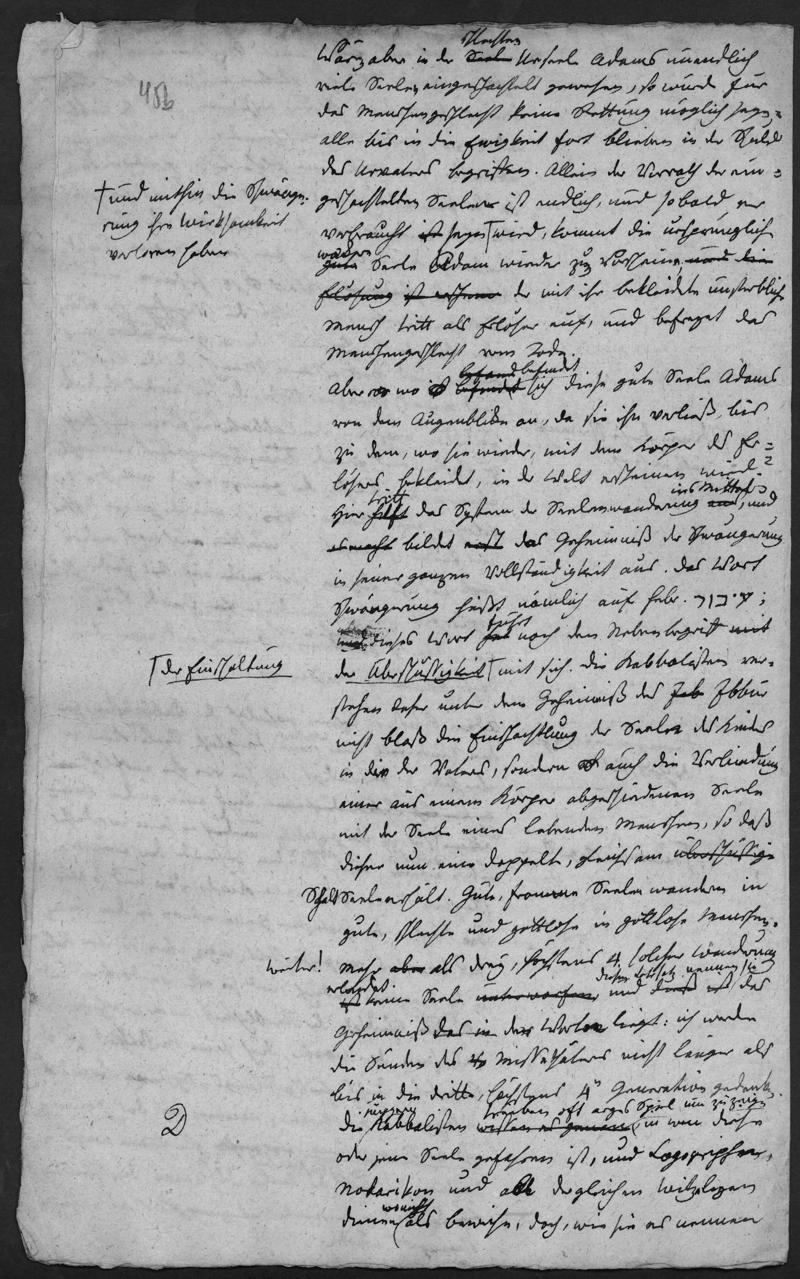 456
schlechten
Wären aber in der Seele Urseele Adams unendlich
viele Seelen eingeschachtelt gewesen, so würde für
das Menschengeschlecht keine Rettung möglich seyn,
alle bis in die Ewigkeit fort blieben in der Schuld
des Urvaters begriffen. Allein der Vorrath der ein=
geschachtelten Seelen ist endlich, und sobald er
verbraucht ist seyn wird, kommt die ursprünglich
† und mithin die Schwänge-
rung ihre Wirksamkeit
verloren haben
gute Seele Adam wieder zum Vorschein, und die
Erlösung ist der mit ihr bekleidete unsterbliche
Mensch tritt als Erlöser auf, und befreyet das
Menschengeschlecht vom Tode.
befindet
Aber wo sich diese gute Seele Adams
von dem Augenblicke an, da sie ihn verließ, bis
zu dem, wo sie wieder, mit dem Körper des Er=
lösers bekleidet, in der Welt erscheinen wird?
tritt ins Mittel
Hier hilft das System der Seelenwanderung aus, und
bildet erst das Geheimniß der Schwängerung
in seiner ganzen Vollständigkeit aus. Das Wort
Schwängerung heißt nämlich auf hebr. עיבור;
führt
dieses Wort hat noch den Nebenbegriff mit
der Überschüssigkeit mit sich. Die Kabbalisten ver-
† der Einschaltung
stehen daher unter dem Geheimniß des Ibbur
nicht bloß die Einschachtlung der Seele des Kindes
in die des Vaters, sondern auch die Verbindung
einer aus einem Körper abgeschiedenen Seele
mit der Seele eines lebenden Menschen, so daß
dieser nun eine doppelte, gleichsam überschüssige
Schalt Seele erhält. Gute, fromme Seelen wandern in
gute, schlechte und gottlose in gottlose Menschen.
weiter!
Mehr aber als drey, höchstens 4 solcher Wanderung
erlaubt
ist keine Seele unterworfen und dieß ist das
Geheimniß das in den Worten liegt: ich werde
die Sünden des Missethäters nicht länger als
bis in die dritte, höchstens 4te Generation gedenken.
treiben oft arges Spiel um zu zeigen
Die Kabbalisten wissen es genau, in wen diese
D
oder jene Seele gefahren ist, und Logogryphen,
Notarikon und alle dergleichen
dienen als Beweise, doch, wie sie es nennen